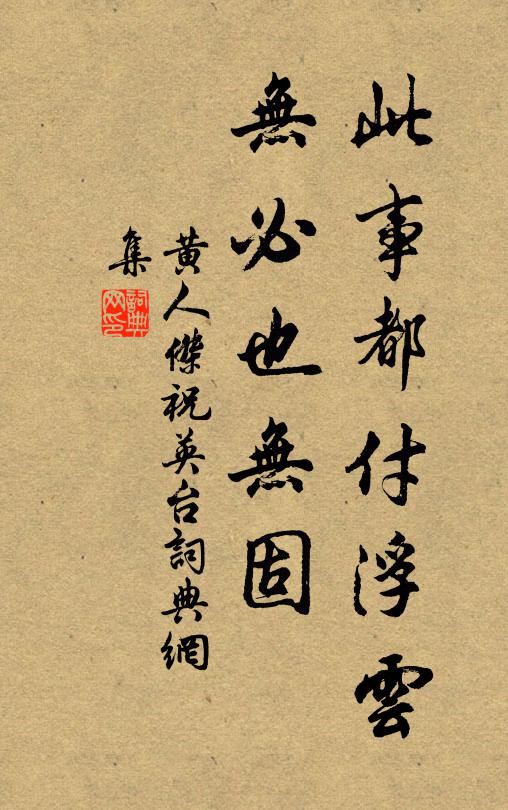 此事都付浮雲
無必也無固
黄人傑祝英台詞典網
集
詞典
网印